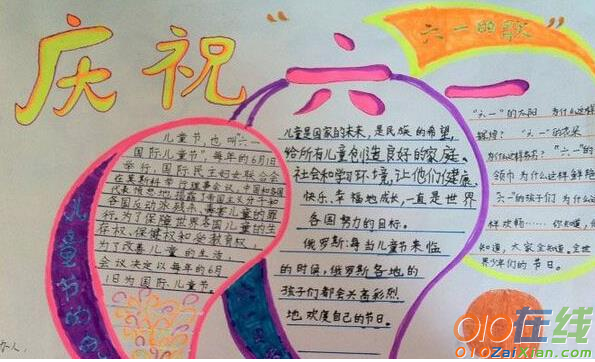 庆祝六一
六一的歌
儿童节的
儿童节,也叫“六一
国际儿童节”,每年的6月1日
举行,国际民主妇女联合会
在莫斯科举行理事会议,中国和各国
生存权、保健权和受教育权,
为了改善儿童的生活,
会议决定以每年的6月
1日为国际儿童节。
儿童是国家的未来,是民族的希望,
给所有儿童创造良好的家庭、
社会和学习环境,让他们健康、
快乐、幸福地成长,一直是世界
各国努力的目标。
俄罗斯:每当儿童节来临
的时候,俄罗斯各地的
孩子们都会兴高彩烈
地欢度自己的节日。
“六一”的太阳 为什么这样
辉煌?“六一”的花朵
为什么这样芬芳?“六一”的
领巾为什么这样鲜艳
六一”的孩子们 为什么这
样欢畅……你知道,
知道,大家全知道。全世
界少年们的节日。
办人:
010在线
010ZaiXian.com